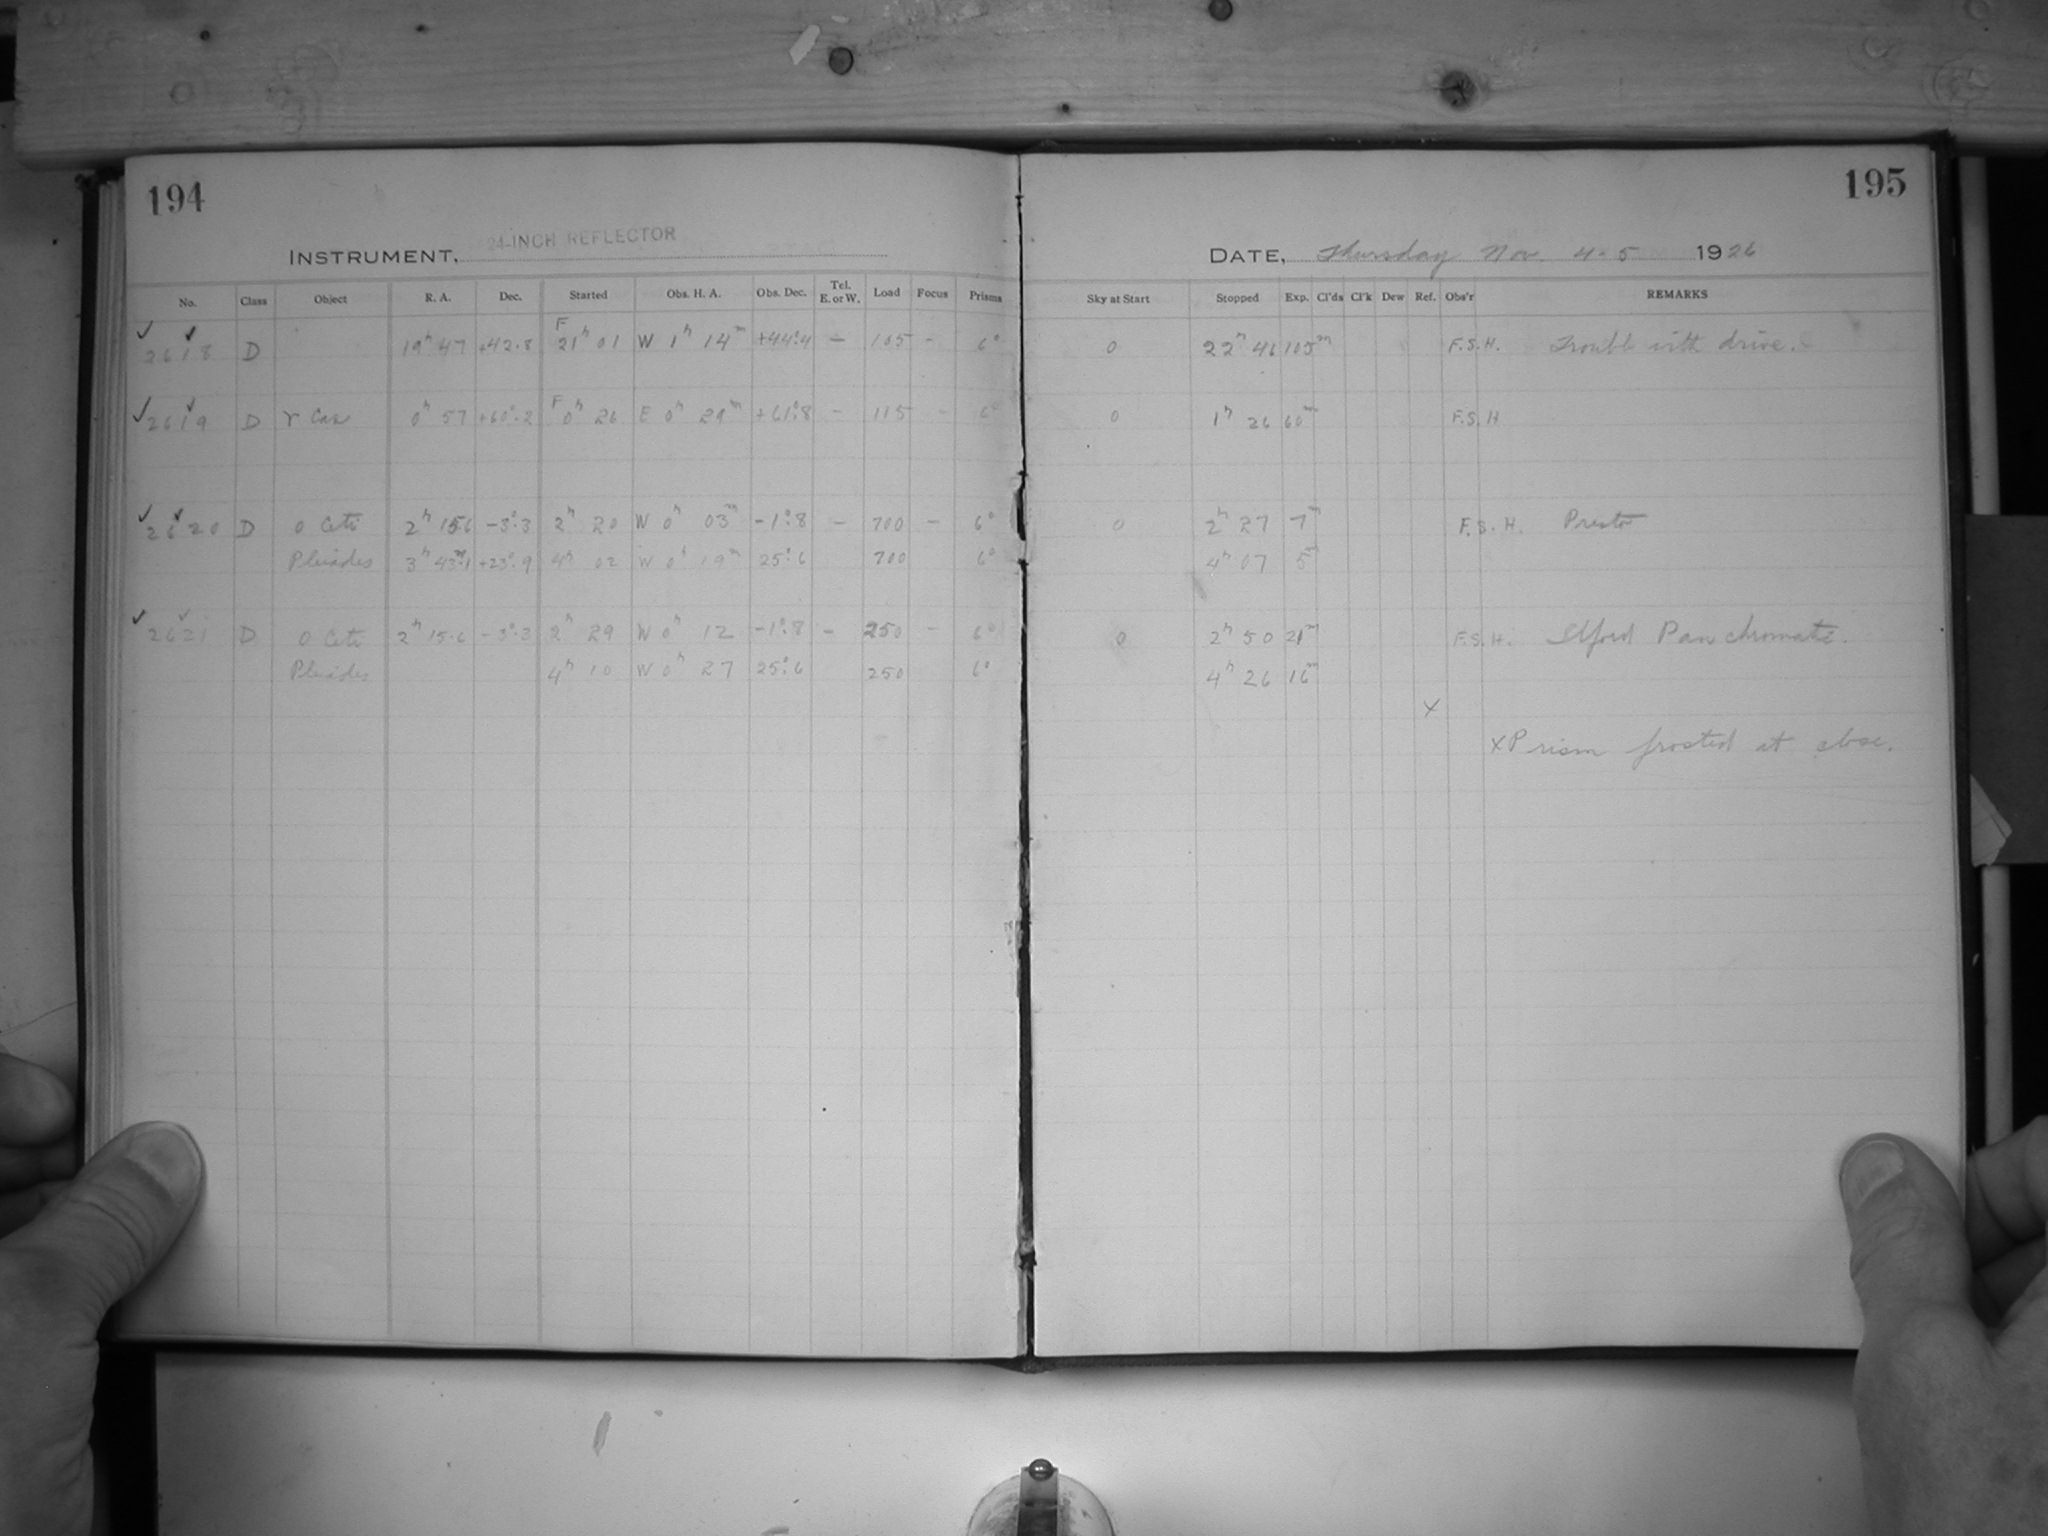 194
195
INSTRUMENT, 24-INCH REFLECTOR
DATE, Thursday Nov. 4-5 1926
No. Class Object R. A. Dec. Started Obs. H. A. Obs. Dec. Tel. E. or W. Load Focus Prisms Sky at Start Stopped Exp. Cl'ds Cl'k Dew Ref. Obs'r REMARKS
✓ ✓ F
2618 D 19h 47 +42.8 21h 01 W 1h 14m +44°.4 – 105 – 6° 0 22h 46 105m F.S.H. Trouble with drive.
✓ ✓ F
2619 D γ Cas 0h 57 +60°.2 0h 26 E 0h 29m +61°.8 – 115 – 6° 0 1h 26 60m F.S.H
✓ ✓
2620 D o Ceti 2h 15.6 -3°.3 2h 20 W 0h 03m -1°.8 – 700 – 6° 0 2h 27 7m F.S.H.
Pleiades 3h 43m.1 +23°.9 4h 02 W 0h 19m 25°.6 700 6° 4h 07 5m
✓ ✓
2621 D o Ceti 2h 15.6 -3°.3 2h 29 W 0h 12 -1°.8 – 250 – 6° 0 2h 50 21m F.S.H. Ilford Panchromatic.
Pleiades 4h 10 W 0h 27 25°.6 250 6° 4h 26 16m
x
x Prism frosted at close.